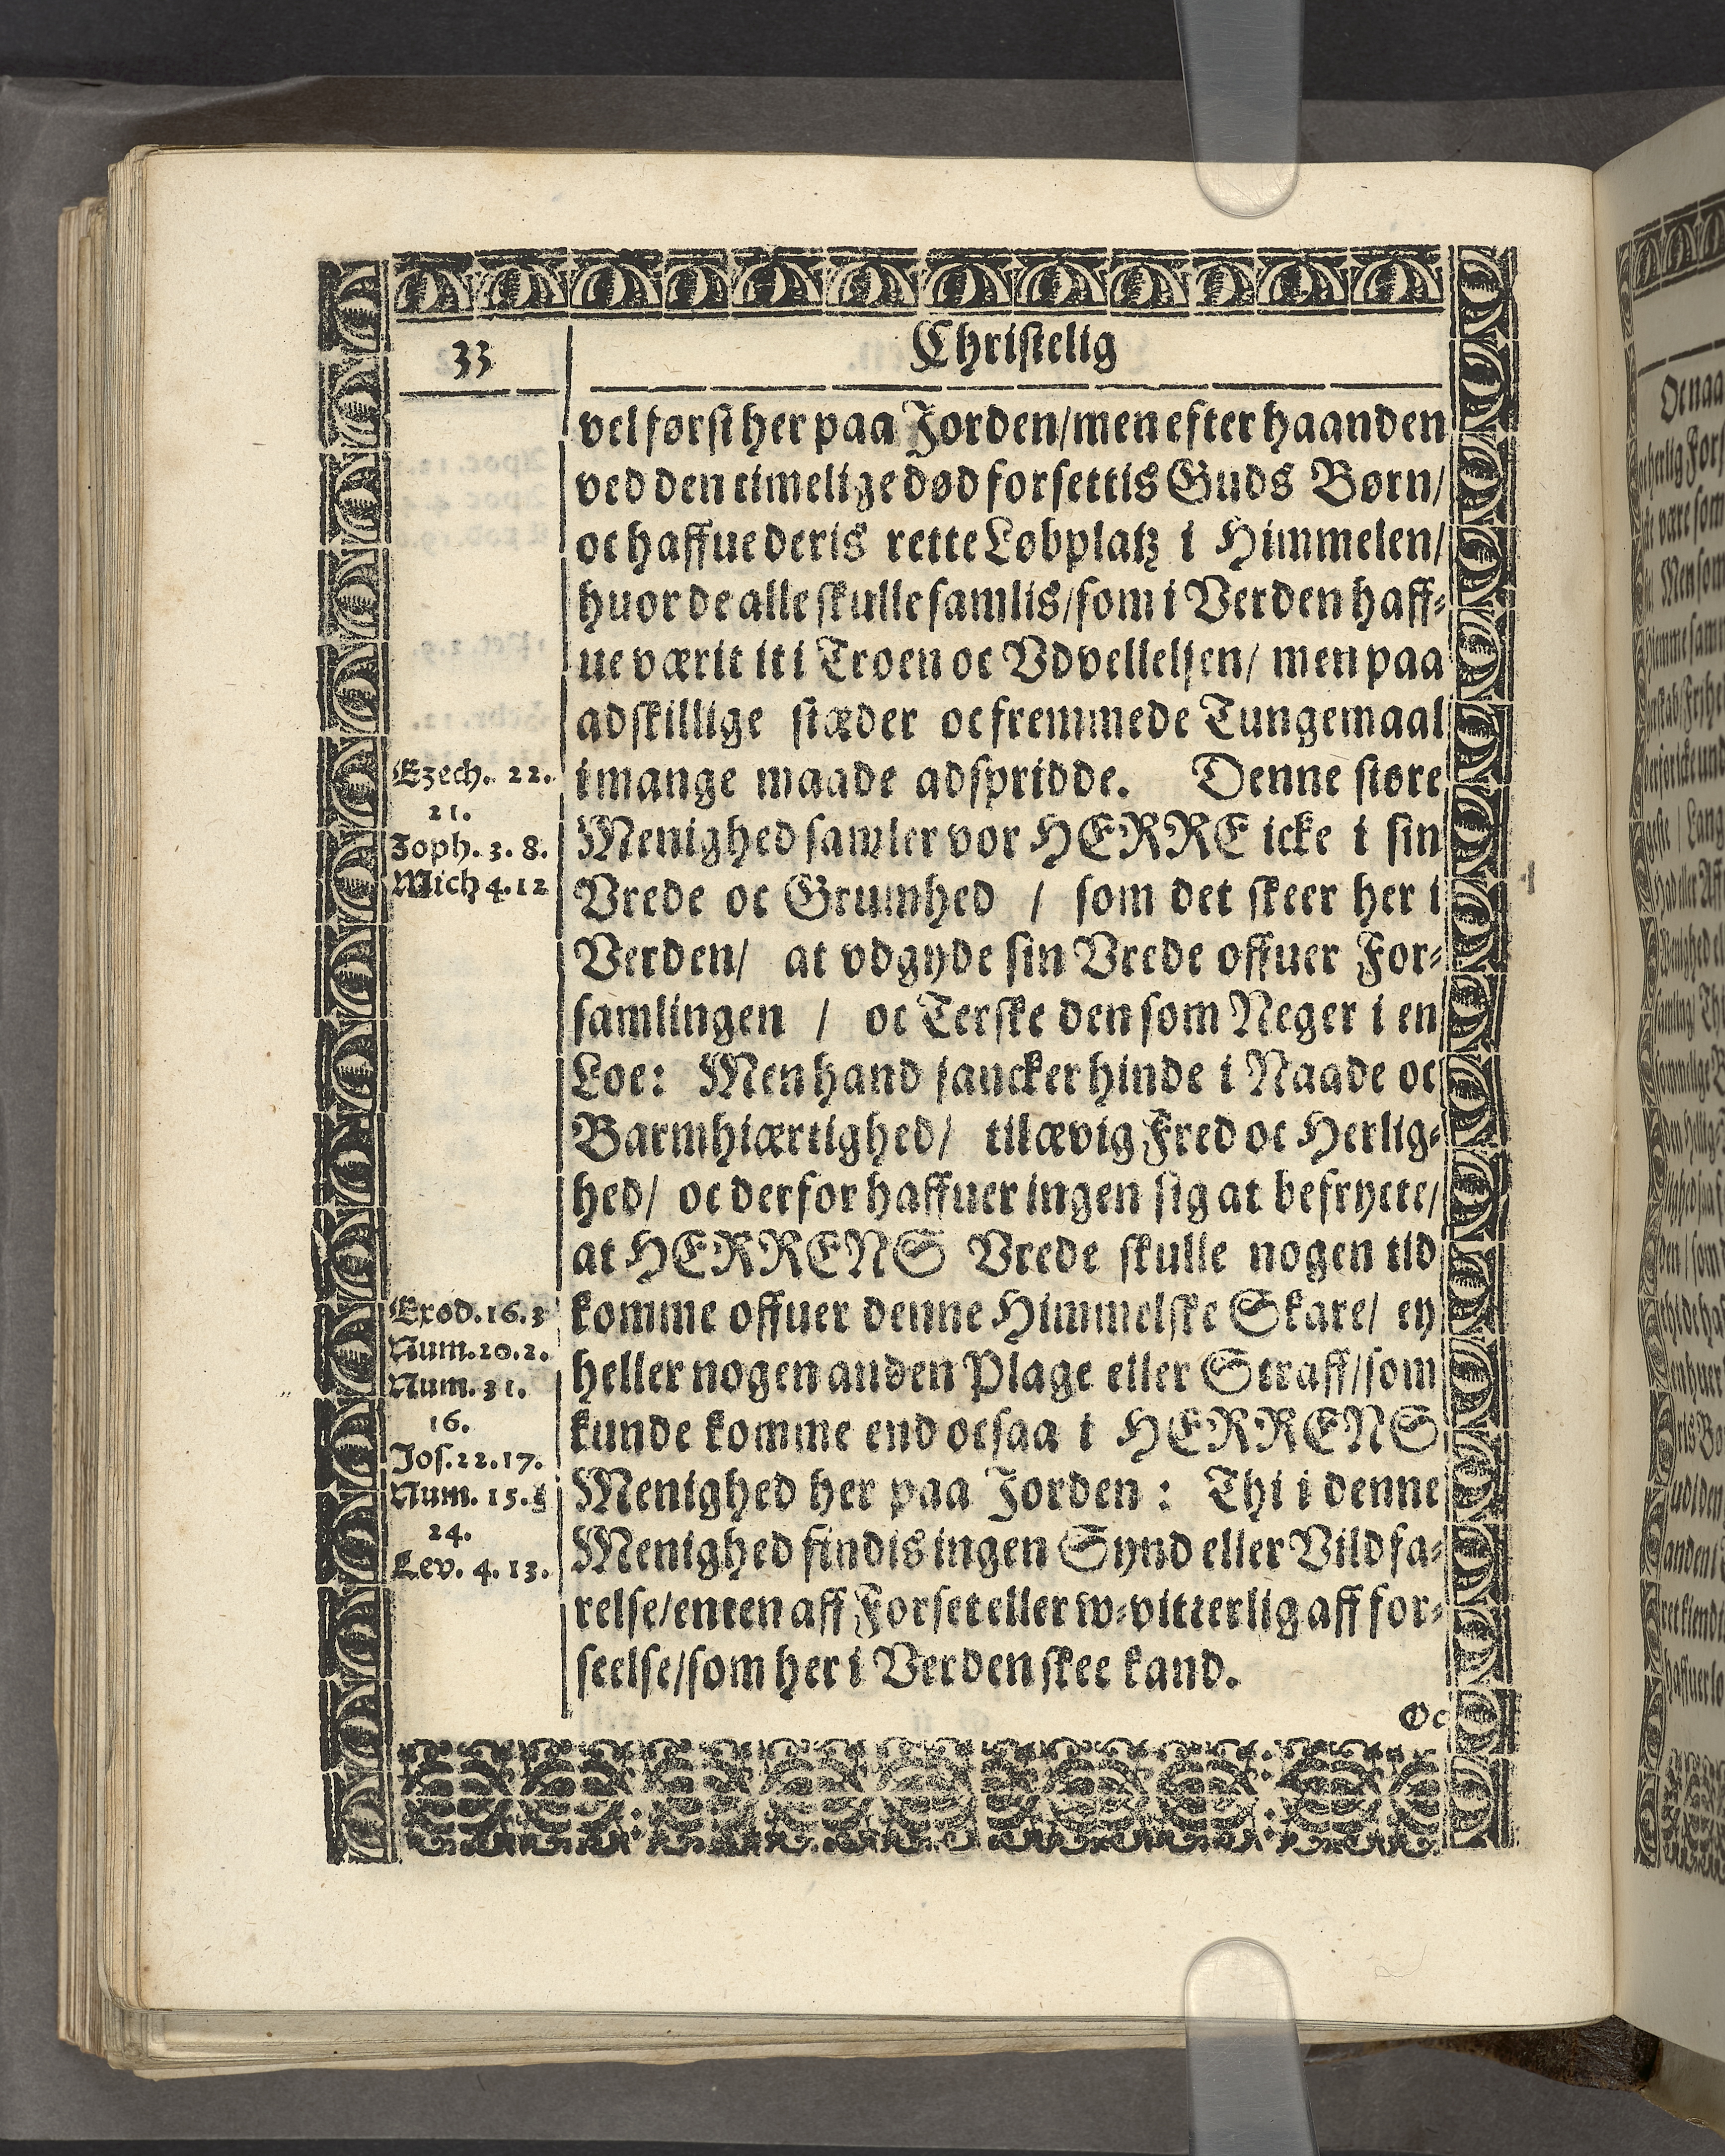 33
Christelig
vel først her paa Jorden/men efter haanden
ved den timelige død forsettis Guds Børn/
oc haffue deris rette Løbplatz i Himmelen/
huor de alle skulle samlis/som i Verden haff⸗
ue værit it i Troen oc Vdvellelsen/ men paa
adskillige stæder oc fremmede Tungemaal
Ezech. 22.
21.
Zoph. 3. 8.
Mich 4. 12
i mange maade adspridde. Denne støre
Menighed samler vor HERRE icke i sin
Vrede oc Grumhed / som det skeer her i
Verden/ at vdgyde sin Vrede offuer For⸗
samlingen / oc Terske den som Neger i en
Loe: Men hand sancker hinde i Naade oc
Barmhiærtighed/ til ævig Fred oc Herlig⸗
hed/ oc derfor haffuer ingen sig at befrycte/
at HERRENS Vrede skulle nogen tid
Exod. 16. 3
Num. 20. 2.
Num. 31.
16.
Jos. 22. 17.
Num. 15.
24.
Lev. 4. 13.
komme offuer denne Himmelske Skare/ ey
heller nogen anden Plage eller Straff/som
kunde komme end ocsaa i HERRENS
Menighed her paa Jorden : Thi i denne
Menighed findis ingen Synd eller Vildfa⸗
relse/enten aff Forset eller w⸗vitterlig aff for⸗
seelse/som her i Verden skee kand.
Oc